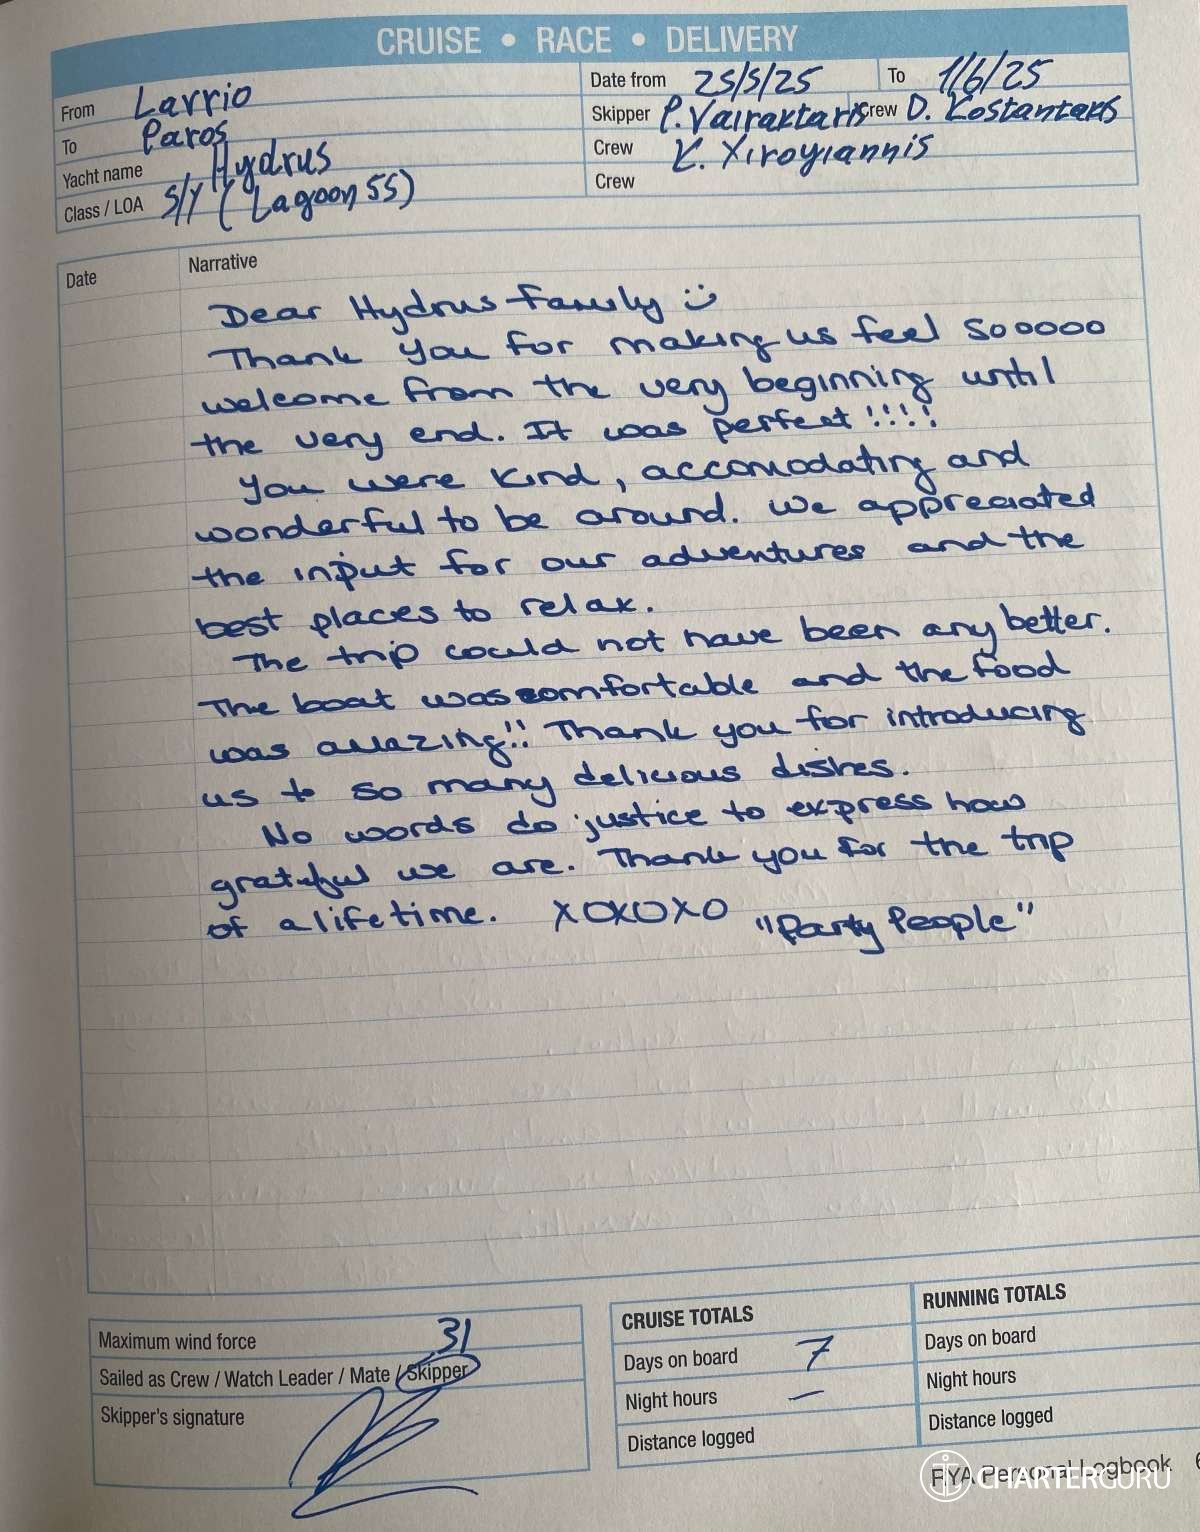 CRUISE • RACE • DELIVERY
From Lavrio
To Paros
Yacht name Hydrus
Class / LOA S/Y (Lagoon 55)
Date from 25/5/25 To 1/6/25
Skipper P. Vairaktaris Crew D. Kostantakis
Crew K. Xiroyiannis
Crew
Date Narrative
Dear Hydrus family :)
Thank you for making us feel sooooo
welcome from the very beginning until
the very end. It was perfect!!!!
You were kind, accomodating and
wonderful to be around. We appreciated
the input for our adventures and the
best places to relax.
The trip could not have been any better.
The boat was comfortable and the food
was amazing!! Thank you for introducing
us to so many delicious dishes.
No words do justice to express how
grateful we are. Thank you for the trip
of a lifetime. XOXOXO "Party People"
Maximum wind force 31
Sailed as Crew / Watch Leader / Mate / Skipper
Skipper's signature
CRUISE TOTALS
Days on board 7
Night hours —
Distance logged
RUNNING TOTALS
Days on board
Night hours
Distance logged
RYA Personal Logbook 6
CHARTERGURU